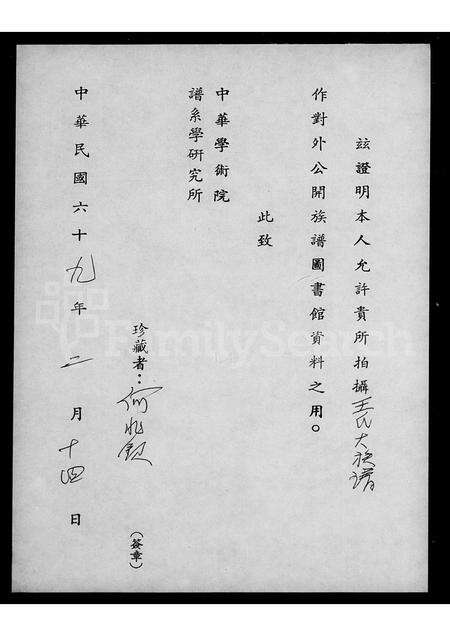 玆證明本人允許貴所拍攝王氏大族譜
作對外公開族譜圖書館資料之用。
此致
中華學術院
譜系學研究所
珍藏者：何兆欽
(簽章)
中華民國六十九年二月十四日
FamilySearch